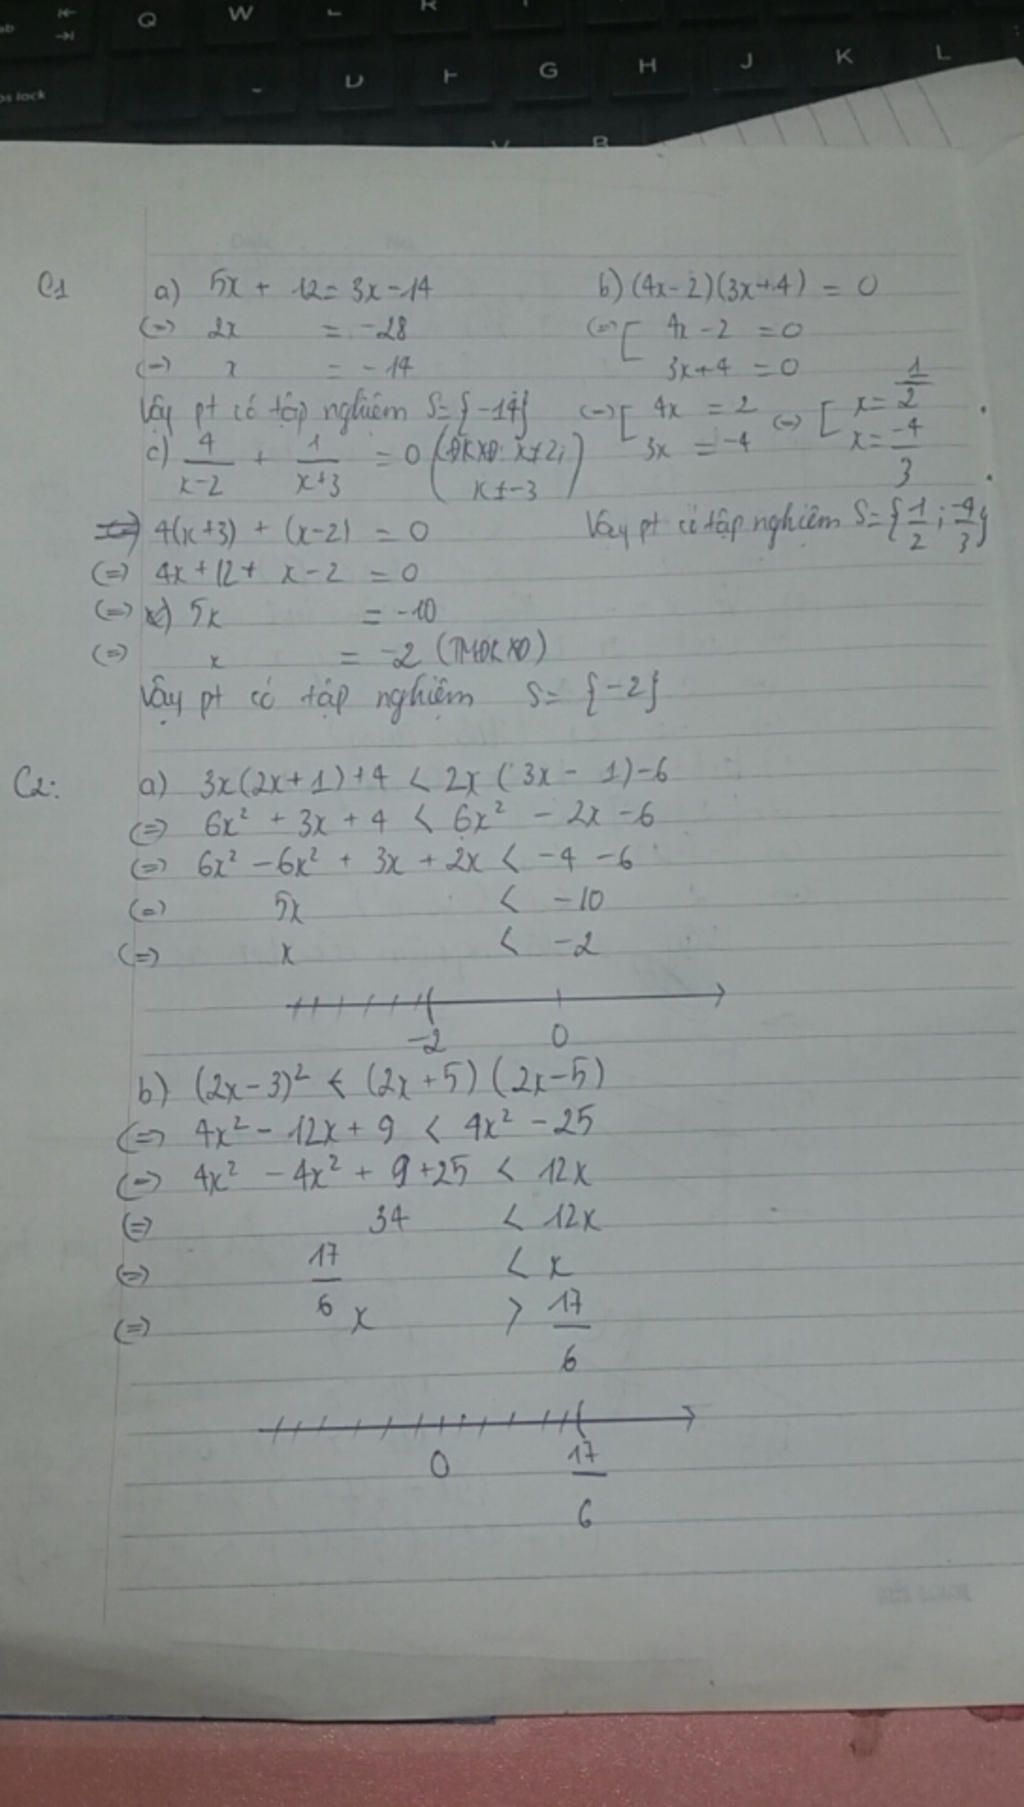 Q W R
D F G H J K L
C1 a) 5x + 12 = 3x - 14
(=) 2x = -28
(=) x = -14
Vậy pt có tập nghiệm S = {-14}
b) (4x-2)(3x+4) = 0
(=) [ 4x - 2 = 0
3x+4 = 0
(=) [ 4x = 2 (=) [ x = 1/2
3x = -4 x = -4/3
Vậy pt có tập nghiệm S = {1/2 ; -4/3}
c) 4/(x-2) + 1/(x+3) = 0 (ĐKXĐ: x≠2; x≠-3)
=> 4(x+3) + (x-2) = 0
(=) 4x+12+ x-2 = 0
(=) 5x = -10
(=) x = -2 (TMĐKXĐ)
Vậy pt có tập nghiệm S = {-2}
C2: a) 3x(2x+1)+4 < 2x(3x-1)-6
(=) 6x² + 3x + 4 < 6x² - 2x - 6
(=) 6x² - 6x² + 3x + 2x < -4 - 6
(=) 5x < -10
(=) x < -2
-2 0
b) (2x-3)² < (2x+5)(2x-5)
(=) 4x² - 12x + 9 < 4x² - 25
(=) 4x² - 4x² + 9 + 25 < 12x
(=) 34 < 12x
(=) 17/6 < x
(=) x > 17/6
0 17/6